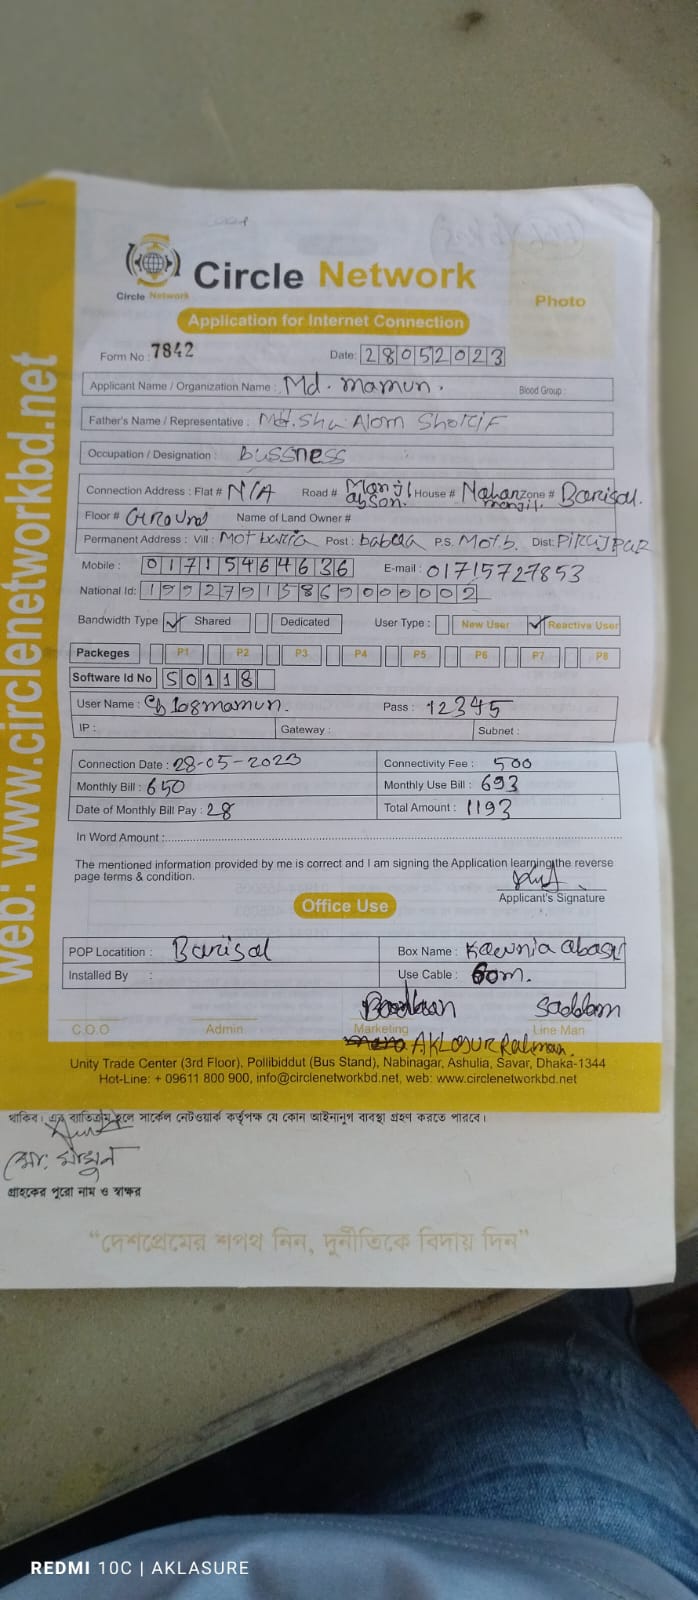 Circle Network
Circle Network
Photo
Application for Internet Connection
Form No : 7842 Date: 28052023
Applicant Name / Organization Name : Md. mamun. Blood Group :
Father's Name / Representative : Md. Sha Alom Sharif
Occupation / Designation : bussness
Connection Address : Flat # N/A Road # House # Zone # Barisal.
Floor # Ground Name of Land Owner #
Permanent Address : Vill : Post : P.S. Motb. Dist: PiRUJPUR
Mobile : 01715464636 E-mail : 01715727853
National Id: 19927915869000002
Bandwidth Type Shared Dedicated User Type : New User Reactive User
Packeges P1 P2 P3 P4 P5 P6 P7 P8
Software Id No 50118
User Name : Pass : 12345
IP : Gateway : Subnet :
Connection Date : 28-05-2023 Connectivity Fee : 500
Monthly Bill : 650 Monthly Use Bill : 693
Date of Monthly Bill Pay : 28 Total Amount : 1193
In Word Amount :
The mentioned information provided by me is correct and I am signing the Application learning the reverse
page terms & condition.
Applicant's Signature
Office Use
POP Locatition : Barisal Box Name : Kawnia
Installed By : Use Cable : 60m.
Saddam
C.O.O Admin Marketing Line Man
AKLOSUR Rahman.
Unity Trade Center (3rd Floor), Pollibiddut (Bus Stand), Nabinagar, Ashulia, Savar, Dhaka-1344
Hot-Line: + 09611 800 900, info@circlenetworkbd.net, web: www.circlenetworkbd.net
web: www.circlenetworkbd.net
থাকিব। এর ব্যতিক্রম হলে সার্কেল নেটওয়ার্ক কর্তৃপক্ষ যে কোন আইনানুগ ব্যবস্থা গ্রহণ করতে পারবে।
মো: মামুন
গ্রাহকের পুরো নাম ও স্বাক্ষর
“দেশপ্রেমের শপথ নিন, দুর্নীতিকে বিদায় দিন”
REDMI 10C | AKLASURE